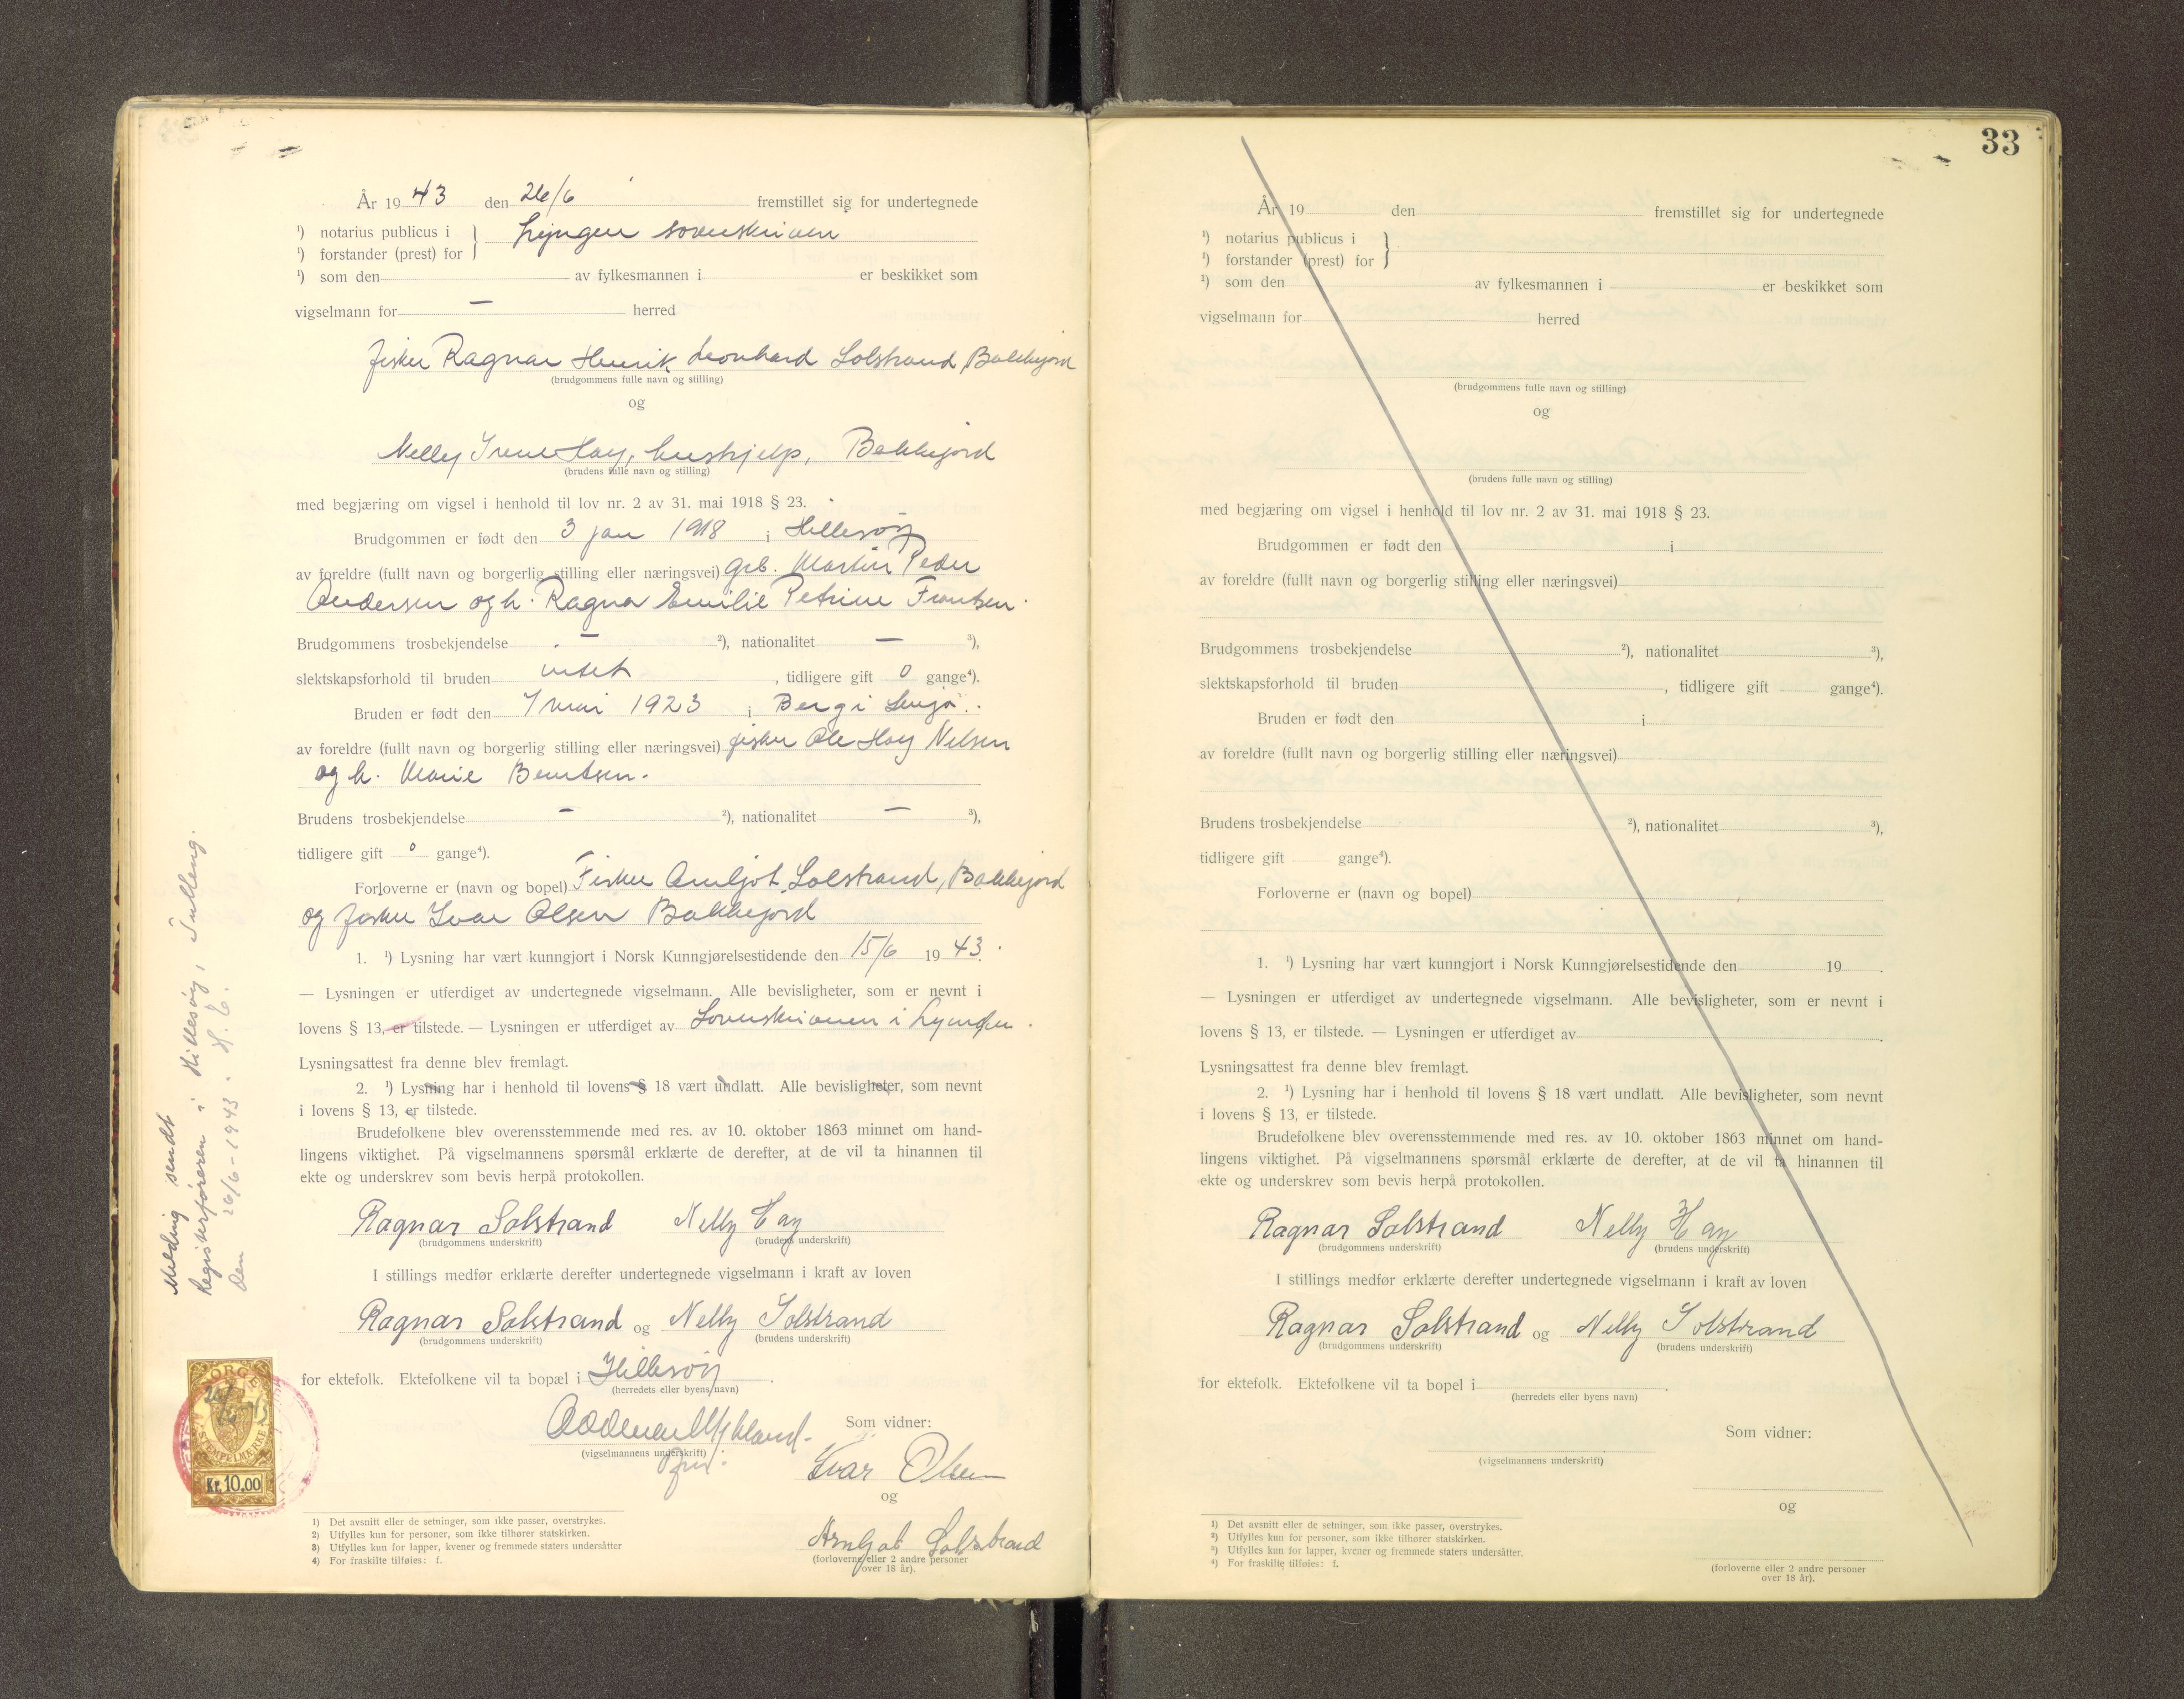 År 19 43 den 26/6 fremstillet sig for undertegnede
¹) notarius publicus i } Lyngen sorenskriveri
¹) forstander (prest) for
¹) som den av fylkesmannen i er beskikket som
vigselmann for — herred
fisker Ragnar Henrik Leonhard Solstrand, Bakkejord
(brudgommens fulle navn og stilling)
og
Nelly Irene Hay, hushjelp, Bakkejord
(brudens fulle navn og stilling)
med begjæring om vigsel i henhold til lov nr. 2 av 31. mai 1918 § 23.
Brudgommen er født den 3 jan 1918 i Hillesøy
av foreldre (fullt navn og borgerlig stilling eller næringsvei) grb. Martin Peder
Andersen og h. Ragna Emilie Petrine Frantsen.
Brudgommens trosbekjendelse — ²), nationalitet — ³),
slektskapsforhold til bruden intet, tidligere gift 0 gange⁴).
Bruden er født den 7 mai 1923 i Berg i Senja.
av foreldre (fullt navn og borgerlig stilling eller næringsvei) fisker Ole Hay Nilsen
og h. Marie Berntsen.
Brudens trosbekjendelse — ²), nationalitet — ³),
tidligere gift 0 gange⁴).
Forloverne er (navn og bopel) Fisker Arnljot Solstrand, Bakkejord
og fisker Ivar Olsen Bakkejord
1. ¹) Lysning har vært kunngjort i Norsk Kunngjørelsestidende den 15/6 19 43.
— Lysningen er utferdiget av undertegnede vigselmann. Alle bevisligheter, som er nevnt i
lovens § 13, er tilstede. — Lysningen er utferdiget av Sorenskriveren i Lyngen.
Lysningsattest fra denne blev fremlagt.
2. ¹) Lysning har i henhold til lovens § 18 vært undlatt. Alle bevisligheter, som nevnt
i lovens § 13, er tilstede.
Brudefolkene blev overensstemmende med res. av 10. oktober 1863 minnet om hand-
lingens viktighet. På vigselmannens spørsmål erklærte de derefter, at de vil ta hinannen til
ekte og underskrev som bevis herpå protokollen.
Ragnar Solstrand Nelly Hay
(brudgommens underskrift) (brudens underskrift)
I stillings medfør erklærte derefter undertegnede vigselmann i kraft av loven
Ragnar Solstrand og Nelly Solstrand
(brudgommens underskrift) (brudens underskrift)
for ektefolk. Ektefolkene vil ta bopæl i Hillesøy.
(herredets eller byens navn)
Som vidner:
(vigselmannens underskrift)
Ivar Olsen
og
Arnljot Solstrand
(forloverne eller 2 andre personer
over 18 år).
1) Det avsnitt eller de setninger, som ikke passer, overstrykes.
2) Utfylles kun for personer, som ikke tilhører statskirken.
3) Utfylles kun for lapper, kvener og fremmede staters undersåtter
4) For fraskilte tilføies: f.
Melding sendt
Registerføreren i Hillesøy, Tulleng.
den 26/6-1943. H. E.
NORGE
STEMPELMERKE
Kr. 10.00
33
År 19 den fremstillet sig for undertegnede
¹) notarius publicus i }
¹) forstander (prest) for
¹) som den av fylkesmannen i er beskikket som
vigselmann for herred
(brudgommens fulle navn og stilling)
og
(brudens fulle navn og stilling)
med begjæring om vigsel i henhold til lov nr. 2 av 31. mai 1918 § 23.
Brudgommen er født den i
av foreldre (fullt navn og borgerlig stilling eller næringsvei)
Brudgommens trosbekjendelse ²), nationalitet ³),
slektskapsforhold til bruden , tidligere gift gange⁴).
Bruden er født den i
av foreldre (fullt navn og borgerlig stilling eller næringsvei)
Brudens trosbekjendelse ²), nationalitet ³),
tidligere gift gange⁴).
Forloverne er (navn og bopel)
1. ¹) Lysning har vært kunngjort i Norsk Kunngjørelsestidende den 19 .
— Lysningen er utferdiget av undertegnede vigselmann. Alle bevisligheter, som er nevnt i
lovens § 13, er tilstede. — Lysningen er utferdiget av .
Lysningsattest fra denne blev fremlagt.
2. ¹) Lysning har i henhold til lovens § 18 vært undlatt. Alle bevisligheter, som nevnt
i lovens § 13, er tilstede.
Brudefolkene blev overensstemmende med res. av 10. oktober 1863 minnet om hand-
lingens viktighet. På vigselmannens spørsmål erklærte de derefter, at de vil ta hinannen til
ekte og underskrev som bevis herpå protokollen.
Ragnar Solstrand Nelly Hay
(brudgommens underskrift) (brudens underskrift)
I stillings medfør erklærte derefter undertegnede vigselmann i kraft av loven
Ragnar Solstrand og Nelly Solstrand
(brudgommens underskrift) (brudens underskrift)
for ektefolk. Ektefolkene vil ta bopel i .
(herredets eller byens navn)
Som vidner:
(vigselmannens underskrift)
og
(forloverne eller 2 andre personer
over 18 år).
¹) Det avsnitt eller de setninger, som ikke passer, overstrykes.
²) Utfylles kun for personer, som ikke tilhører statskirken.
³) Utfylles kun for lapper, kvener og fremmede staters undersåtter.
⁴) For fraskilte tilføies: f.